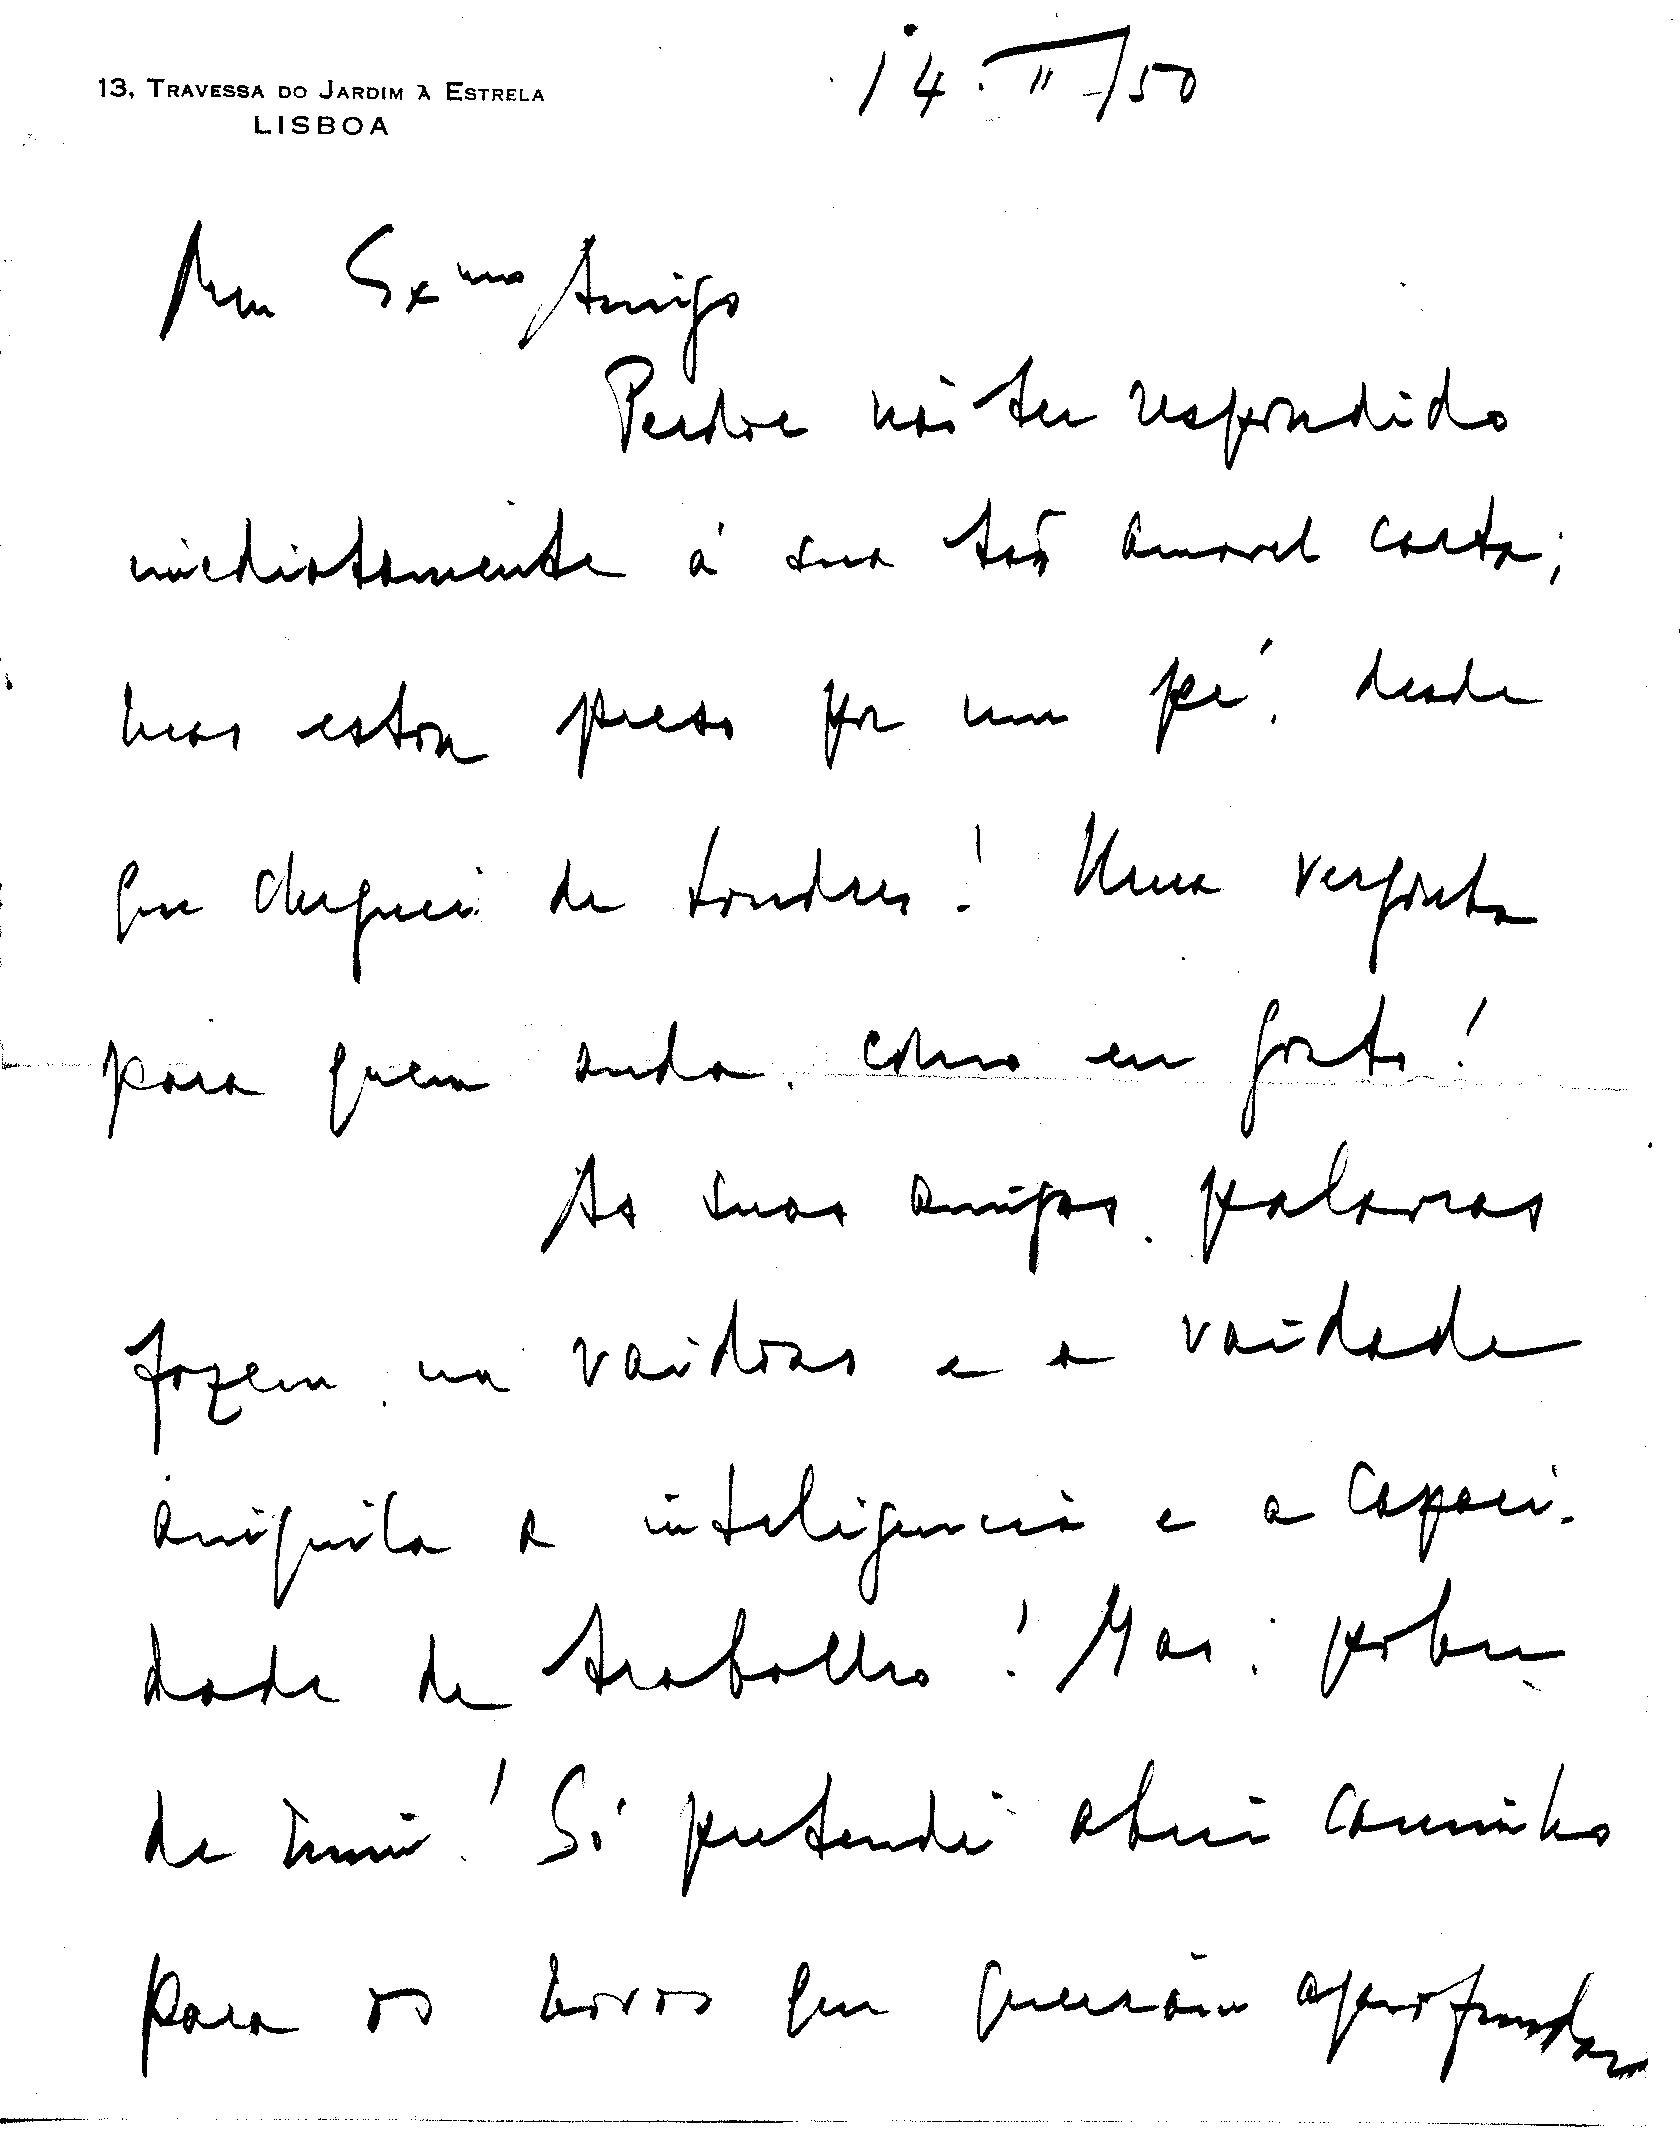 13, TRAVESSA DO JARDIM À ESTRELA
LISBOA
14.II/50
Meu Exmo Amigo
Perdoe não ter respondido
imediatamente á sua tão amavel carta;
mas estou preso por um pé, desde
que cheguei de Londres! Uma vergonha
para quem anda, como eu gosto!
As suas amigas palavras
fazem-me vaidoso e a vaidade
aniquila a inteligencia e a capaci-
dade de trabalho! Mas, pobre
de mim! Só pretendi abrir caminho
para os novos que queiram aprofundar